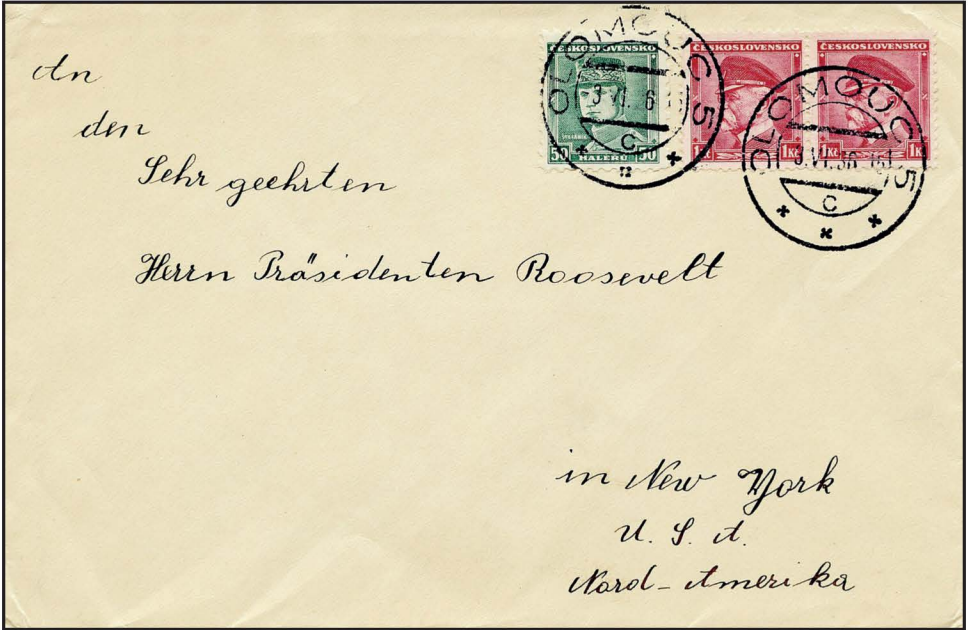 An
den
Sehr geehrten
Herrn Präsidenten Roosevelt
in New York
U. S. A.
Nord-Amerika
ČESKOSLOVENSKO
50 HALÉŘŮ 50
ČESKOSLOVENSKO
1Kč 1Kč
ČESKOSLOVENSKO
1Kč 1Kč
OLOMOUC 5
C
OLOMOUC 5
C